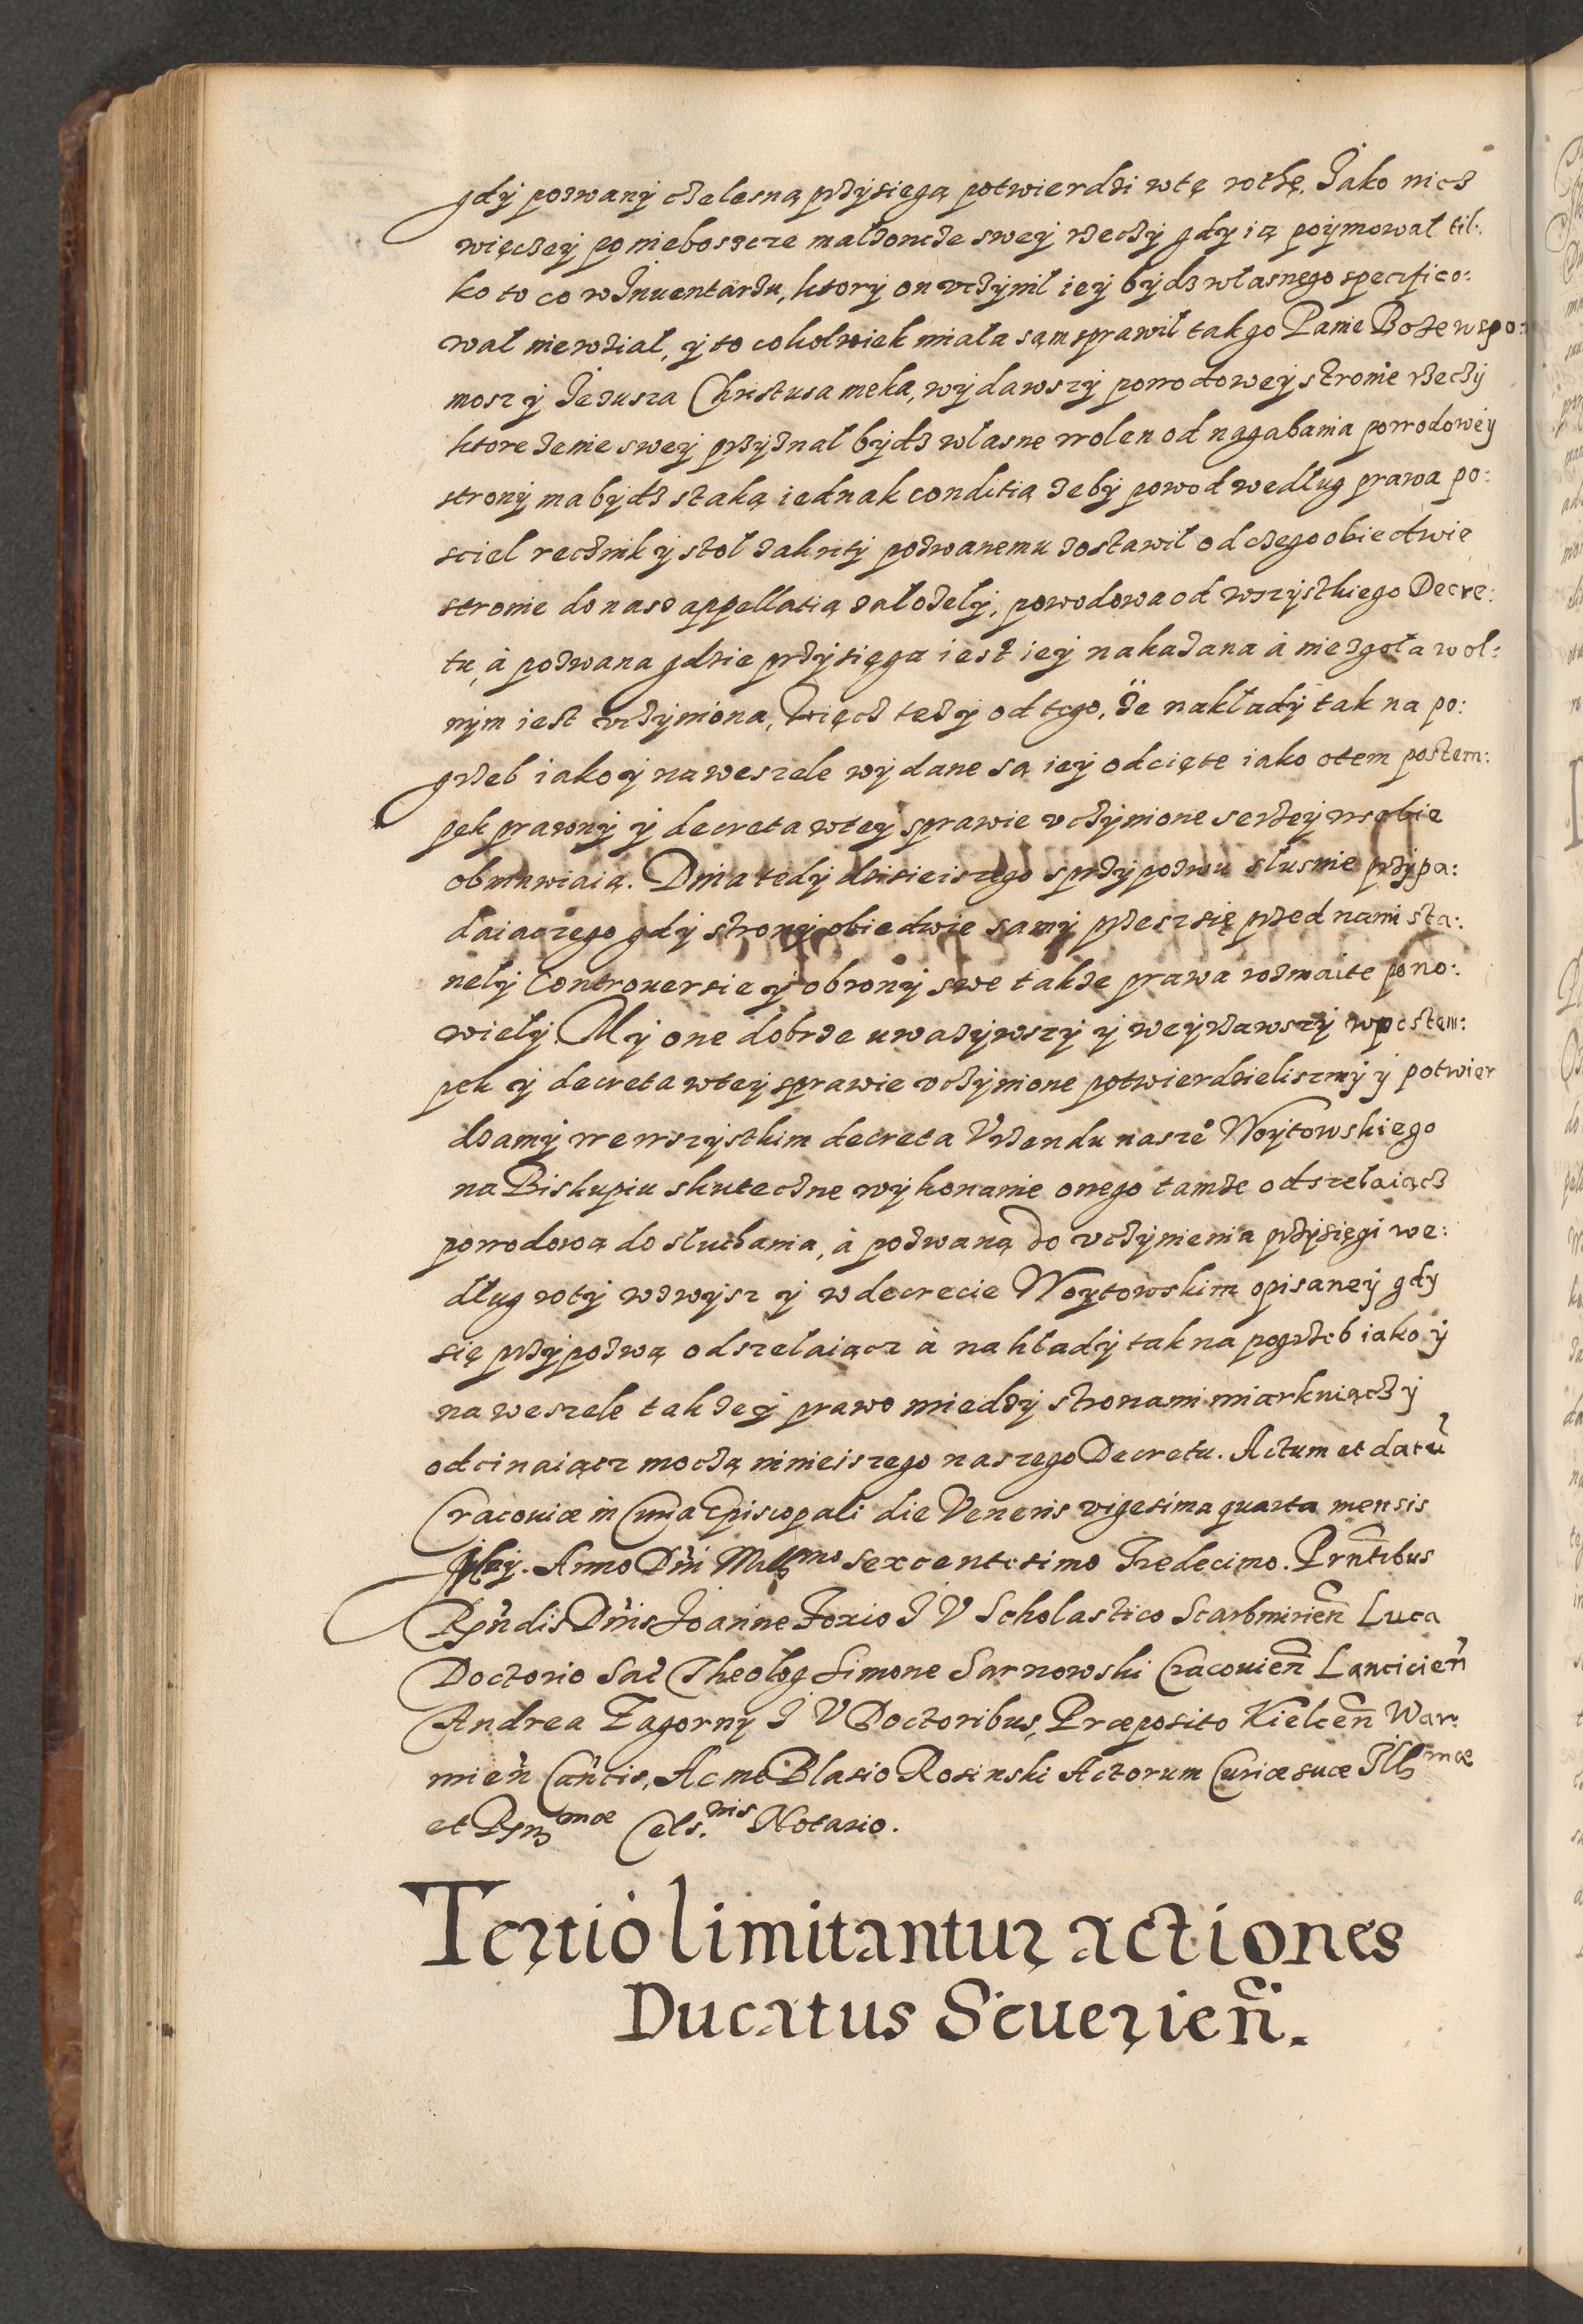 gdÿ pozwanÿ czelesną przÿsiegą potwierdzi wtę rothę. Jako nicz
więczeÿ po nieboszcze małzoncze sweÿ rzeczÿ gdy ią poÿmował til:
ko to co w Inuentarzu, ktorÿ on vczÿnil ieÿ bÿdz własnego specifico:
wał niewział, ÿ to cokolwiek miała sąm sprawił tak go Panie Boze wspo:
mosz ÿ Jezusza Christusa meka, wÿdawszÿ powodoweÿ stronie rzeczÿ
ktore zenie sweÿ przÿznał bÿdz własne wolen od nagabania powodoweÿ
stronÿ ma bÿdz ztaką iednak conditią zebÿ powod według prawa po:
sciel recznik ÿ stoł zakritÿ pozwanemu zostawił od czego obiedwie
stronie do nasz appellatią załozelÿ, powodowa od wszÿstkiego Decre:
tu, à pozwana gdzie przÿsięga iest ieÿ nakazana à niezgoła wol:
nÿm iest vczÿniona, Więcz tedÿ od tego, ze nakładÿ tak na po:
grzeb iako ÿ na weszele wÿdane są ieÿ odcięte iako otem postem:
pek prawnÿ ÿ decreta wteÿ sprawie vczÿnione serzeÿ wsobie
obmawiaią. Dnia tedÿ dzisieiszego sprzÿpozwu słusnie przÿpa:
daiaczego gdÿ stronÿ obiedwie samÿ przeszsię przed nami sta:
nelÿ Controuersie ÿ obronÿ swe takze prawa rozmaite pono:
wielÿ. Mÿ one dobrze uwazÿwszÿ ÿ weÿrzawszÿ wpostem:
pek ÿ decreta wteÿ sprawie vczÿnione potwierdzieliszmÿ ÿ potwier
dzamÿ wewszÿstkim decreta Vrzendu nasze° Woÿtowskiego
na Biskupiu skuteczne wÿkonanie onego tamze odszełaiącz
powodową do słuchania, à pozwaną do vczÿnienia przÿsięgi we:
dług rotÿ wzwÿsz ÿ w decrecie Woÿtowskim opisaneÿ gdy
się przÿpozwą odszełaiącz à nakładÿ tak na pogrzeb iako ÿ
na weszele takze ÿ prawo miedzÿ stronami miarkuiącz ÿ
odcinaiącz moczą ninieiszego naszego Decretu. Actum et datũ
Cracouiæ in Curia Episcopali die Veneris vigesima quarta mensis
Maÿ. Anno Dñi Mill͠mo sexcentesimo Tredecimo. Prñtibus
Rñdis Dñis Joanne Foxio J V Scholastico Scarbmirień Luca
Doctorio Sac Theolog Simone Sarnowski Cracouień Lancicień
Andrea Zagornÿ J V Doctoribus, Præposito Kielceń War:
mień Cańcis, Ac me Blasio Rosinski Actorum Curiæ suæ Illmæ
et Rmæ Cels.nis Notario.
Tertiò limitantur actiones
Ducatus Seuerień.